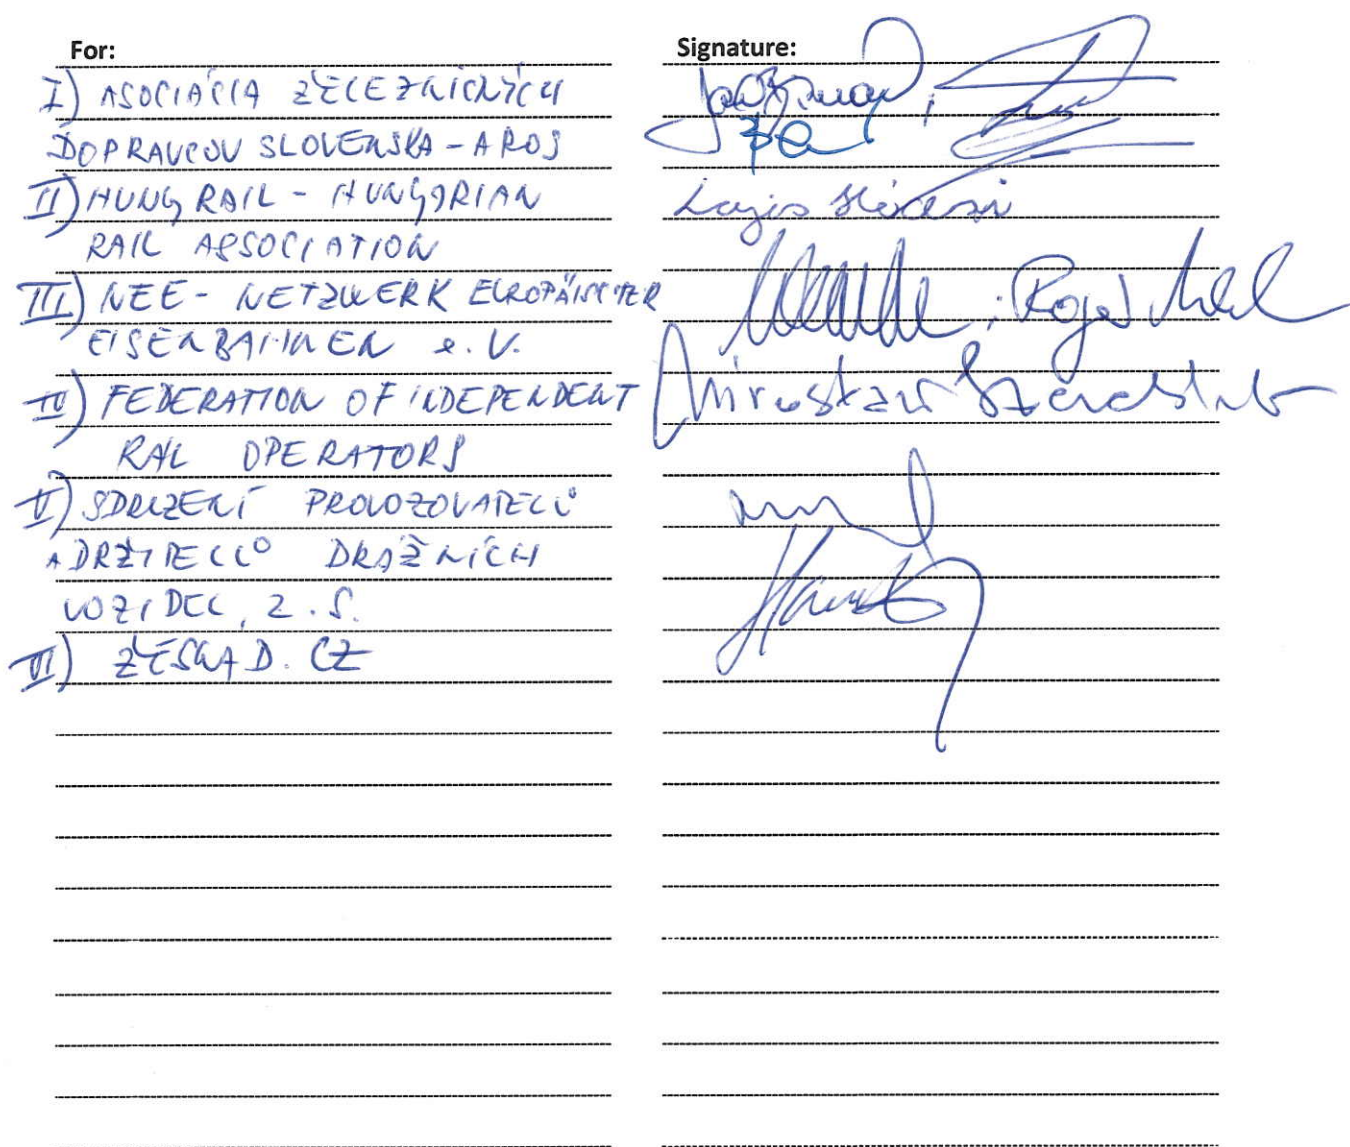 For:
Signature:
I) ASOCIÁCIA ŽELEZNIČNÝCH
DOPRAVCOV SLOVENSKA - AROS
II) HUNGRAIL - HUNGARIAN
Lajos
RAIL ASSOCIATION
III) NEE - NETZWERK EUROPÄISCHER
EISENBAHNEN e.V.
IV) FEDERATION OF INDEPENDENT
Mirosław
RAIL OPERATORS
V) SDRUŽENÍ PROVOZOVATELŮ
A DRŽITELŮ DRÁŽNÍCH
VOZIDEL, Z.S.
VI) ŽESNAD.CZ